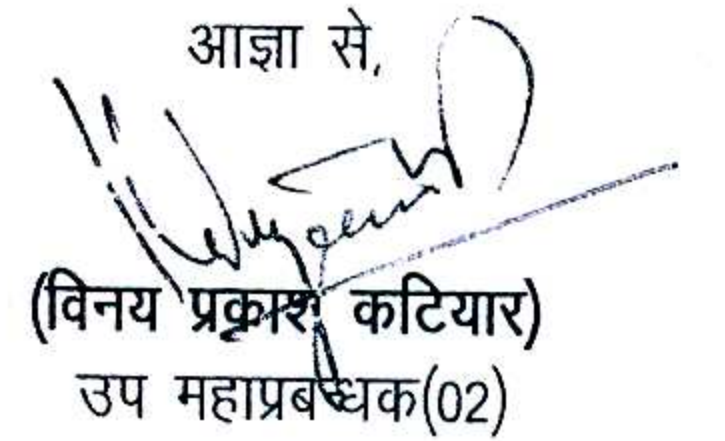 आज्ञा से,
(विनय प्रकाश कटियार)
उप महाप्रबन्धक(02)